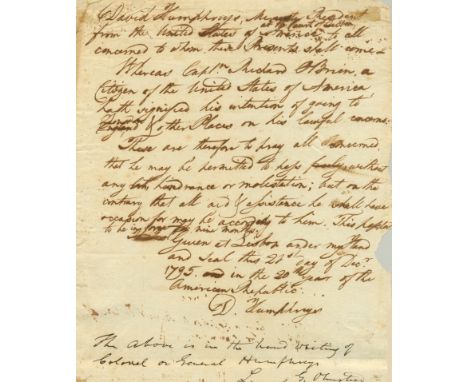 David Humphreys, Resident
at the Court of Lisbon
from the United States of America to all
concerned to whom these Presents shall come
Whereas Captn Richard O'Brien, a
Citizen of the United States of America
hath signified his intention of going to
England & other Places on his lawful concerns
These are therefore to pray all concerned,
that he may be permitted to pass freely without
any hindrance or molestation; but on the
contrary that all aid & assistance he shall have
occasion for may be according to him. This passport
to be in force for nine months
Given at Lisbon under my Hand
and Seal this 21st day of Decr
1795. and in the 20th year of the
American Republic
D. Humphreys
The above is in the hand writing of
Colonel or General Humphreys